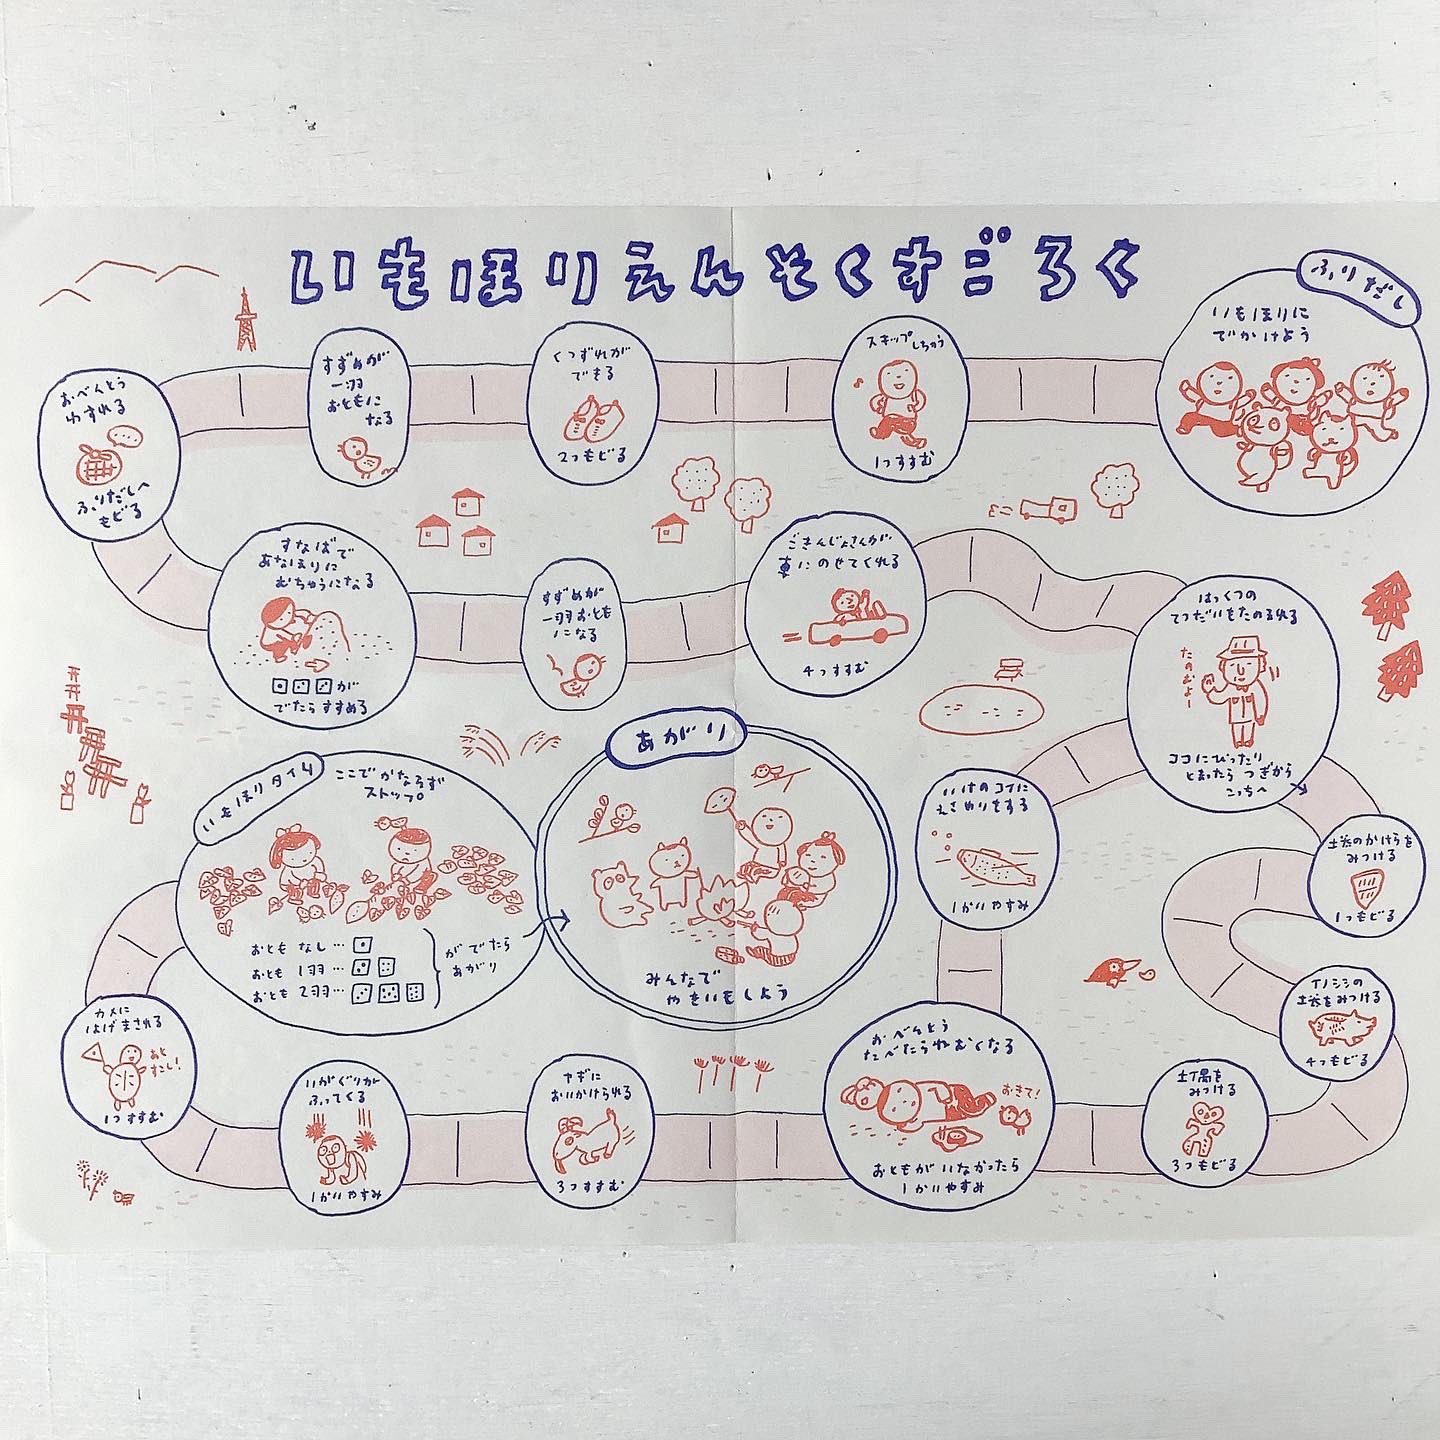 いもほりえんそくすごろく
ふりだし
いもほりに
でかけよう
スキップしちゃう
1つすすむ
くつずれが
できる
2つもどる
すずめが
一羽
おともに
なる
おべんとう
わすれる
ふりだしへ
もどる
すなばで
あなほりに
むちゅうになる
が
でたらすすめる
すずめが
一羽おとも
になる
ごきんじょさんが
車にのせてくれる
4つすすむ
はっくつの
てつだいをたのまれる
たのむよー
ココにぴったり
とまったら つぎから
こっちへ
土器のかけらを
みつける
1つもどる
イノシシの
土器をみつける
4つもどる
土偶を
みつける
3つもどる
いけのコイに
えさやりをする
1かいやすみ
おべんとう
たべたらねむくなる
おきて!
おともがいなかったら
1かいやすみ
ヤギに
おいかけられる
3つすすむ
いがぐりが
ふってくる
1かいやすみ
カメに
はげまされる
あと
すこし!
1つすすむ
いもほりタイム
ここでかならず
ストップ。
おとも なし…
おとも 1羽…
おとも 2羽…
がでたら
あがり
あがり
みんなで
やきいもしよう